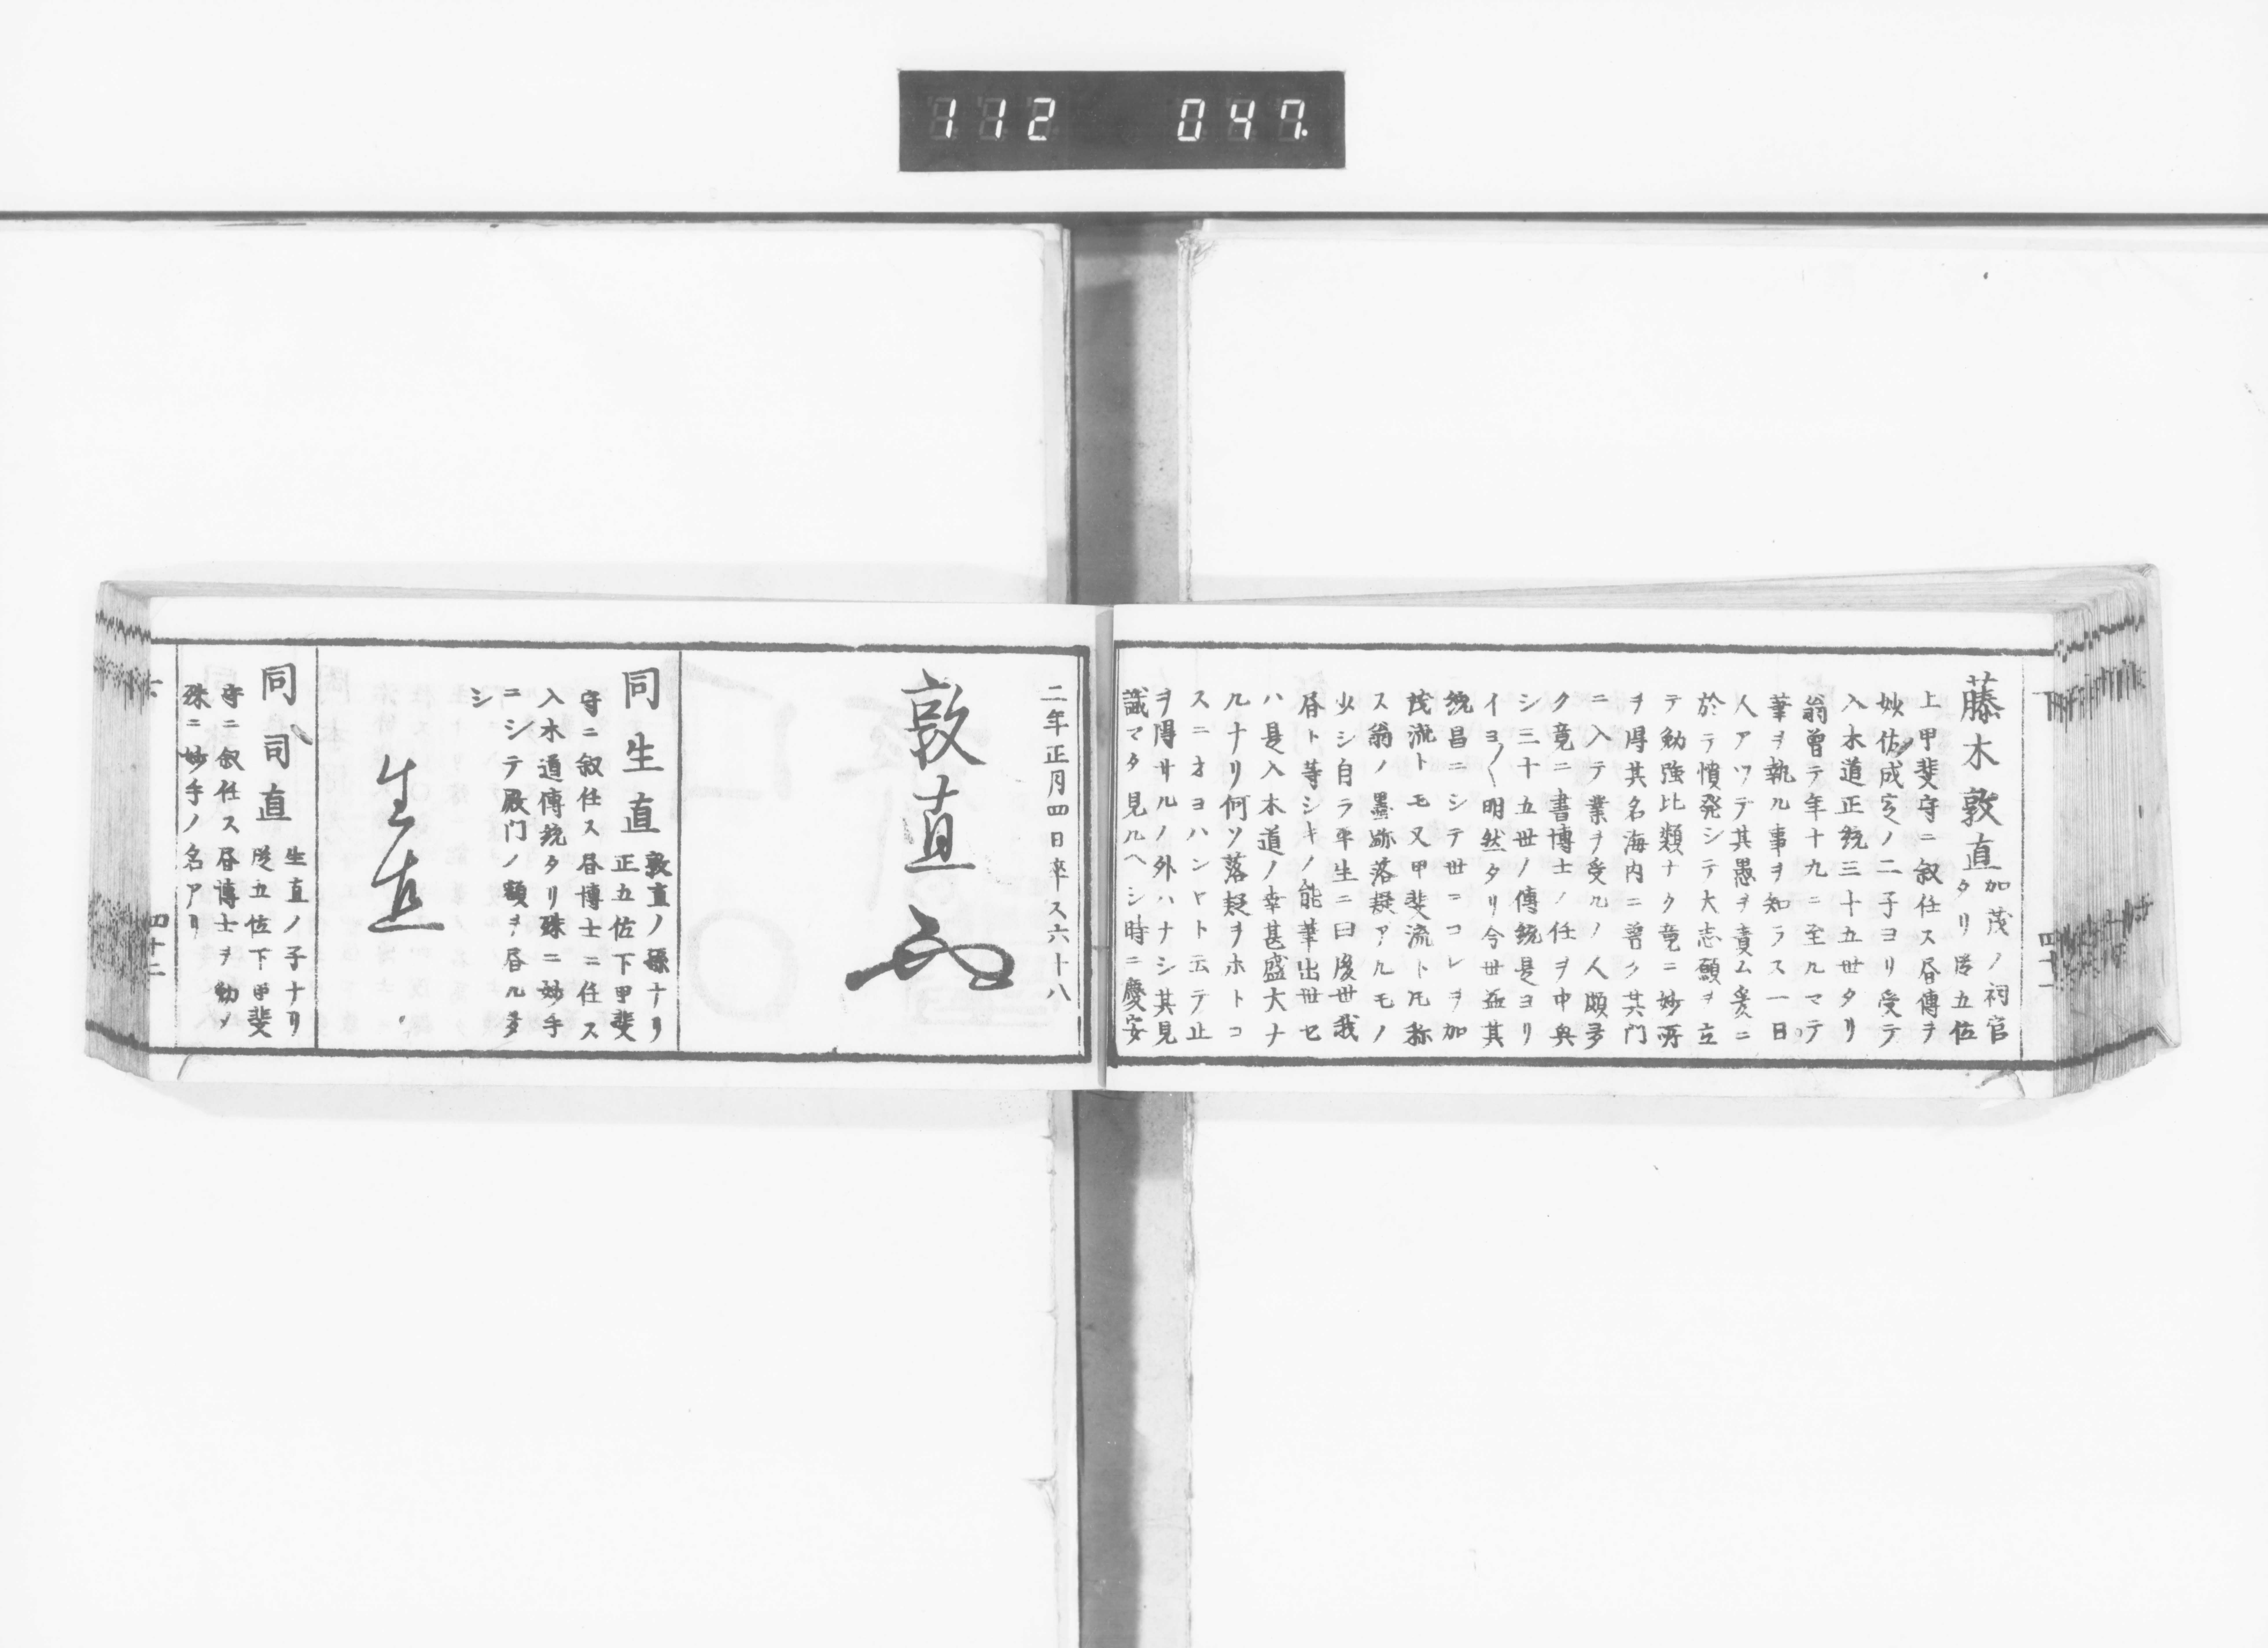 112 047
藤木敦直 加茂ノ祠官
タリ従五位
上甲斐守ニ叙任ス昼傳ヲ
妙佐成定ノ二子ヨリ受テ
入木道正統三十五世タリ
翁曽テ年十九ニ至ルマテ
筆ヲ執ル事ヲ知ラス一日
人アツテ其愚ヲ責ム爰ニ
於テ憤発シテ大志願ヲ立
テ勉強比類ナク竟ニ妙所
ヲ得其名海内ニ普ク其門
ニ入テ業ヲ受ルノ人頗多
ク竟ニ書博士ノ任ヲ中興
シ三十五世ノ傳統是ヨリ
イヨ〱明然タリ今世益其
統昌ニシテ世ニコレヲ加
茂流トモ又甲斐流トモ称
ス翁ノ墨跡落疑アルモノ
少シ自ラ平生ニ曰後世我
昼ト等シキノ能筆出世セ
ハ是入木道ノ幸甚盛大ナ
ルナリ何ソ落疑ヲホトコ
スニオヨハンヤト云テ止
ヲ得サルノ外ハナシ其見
識マタ見ルヘシ時ニ慶安
下
四十一
二年正月四日卒ス六十八
敦直
同生直 敦直ノ孫ナリ
正五位下甲斐
守ニ叙任ス昼博士ニ任ス
入木道傳統タリ殊ニ妙手
ニシテ殿門ノ額ヲ昼ル多
シ
生直
同司直 生直ノ子ナリ
従五位下甲斐
守ニ叙任ス昼博士ヲ勤メ
殊ニ妙手ノ名アリ
四十二